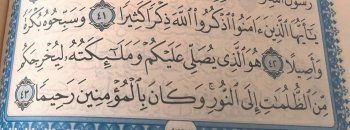 يَٰٓأَيُّهَا ٱلَّذِينَ ءَامَنُوا۟ ٱذْكُرُوا۟ ٱللَّهَ ذِكْرًا كَثِيرًا ٤١ وَسَبِّحُوهُ بُكْرَةً
وَأَصِيلًا ٤٢ هُوَ ٱلَّذِى يُصَلِّى عَلَيْكُمْ وَمَلَٰٓئِكَتُهُۥ لِيُخْرِجَكُم
مِّنَ ٱلظُّلُمَٰتِ إِلَى ٱلنُّورِ وَكَانَ بِٱلْمُؤْمِنِينَ رَحِيمًا ٤٣